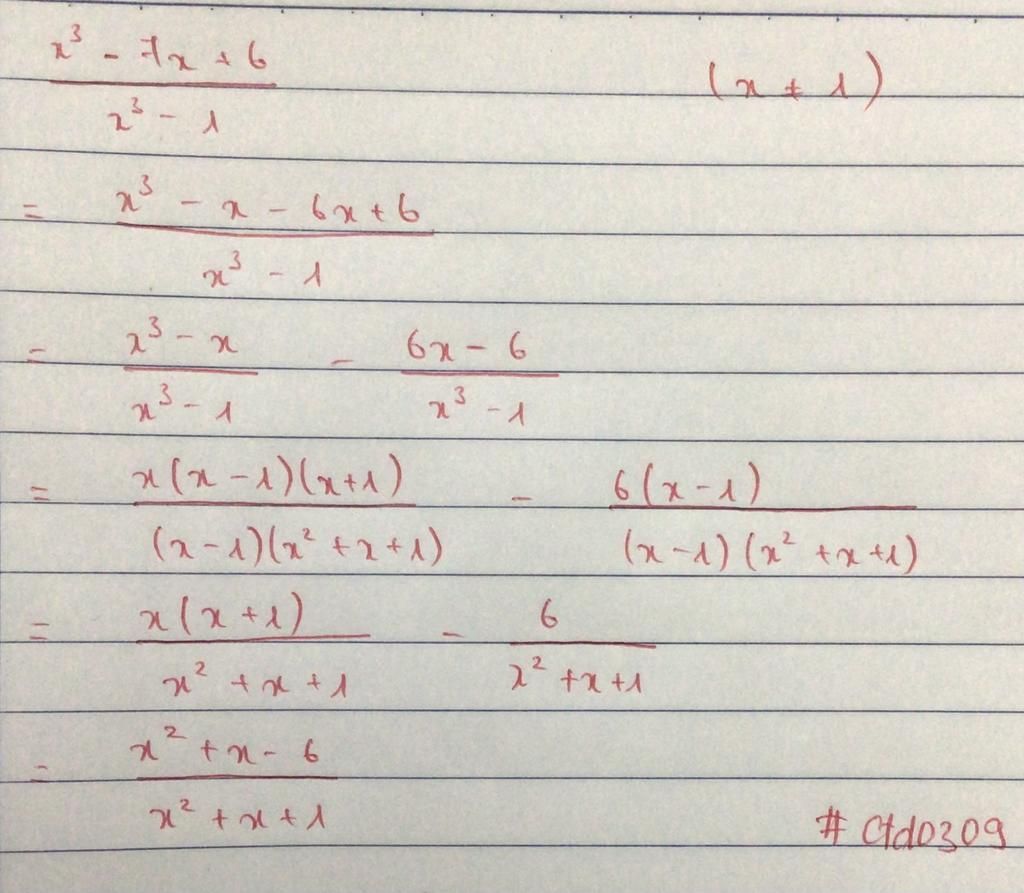 x³ - 7x + 6
(x ≠ 1)
x³ - 1
= x³ - x - 6x + 6
x³ - 1
= x³ - x - 6x - 6
x³ - 1 x³ - 1
= x(x - 1)(x+1) - 6(x - 1)
(x - 1)(x² + x + 1) (x - 1)(x² + x + 1)
= x(x + 1) - 6
x² + x + 1 x² + x + 1
= x² + x - 6
x² + x + 1
# Ctd0309